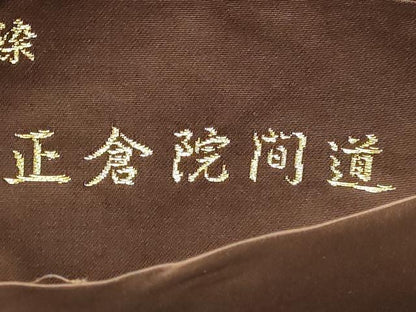 染
正倉院間道